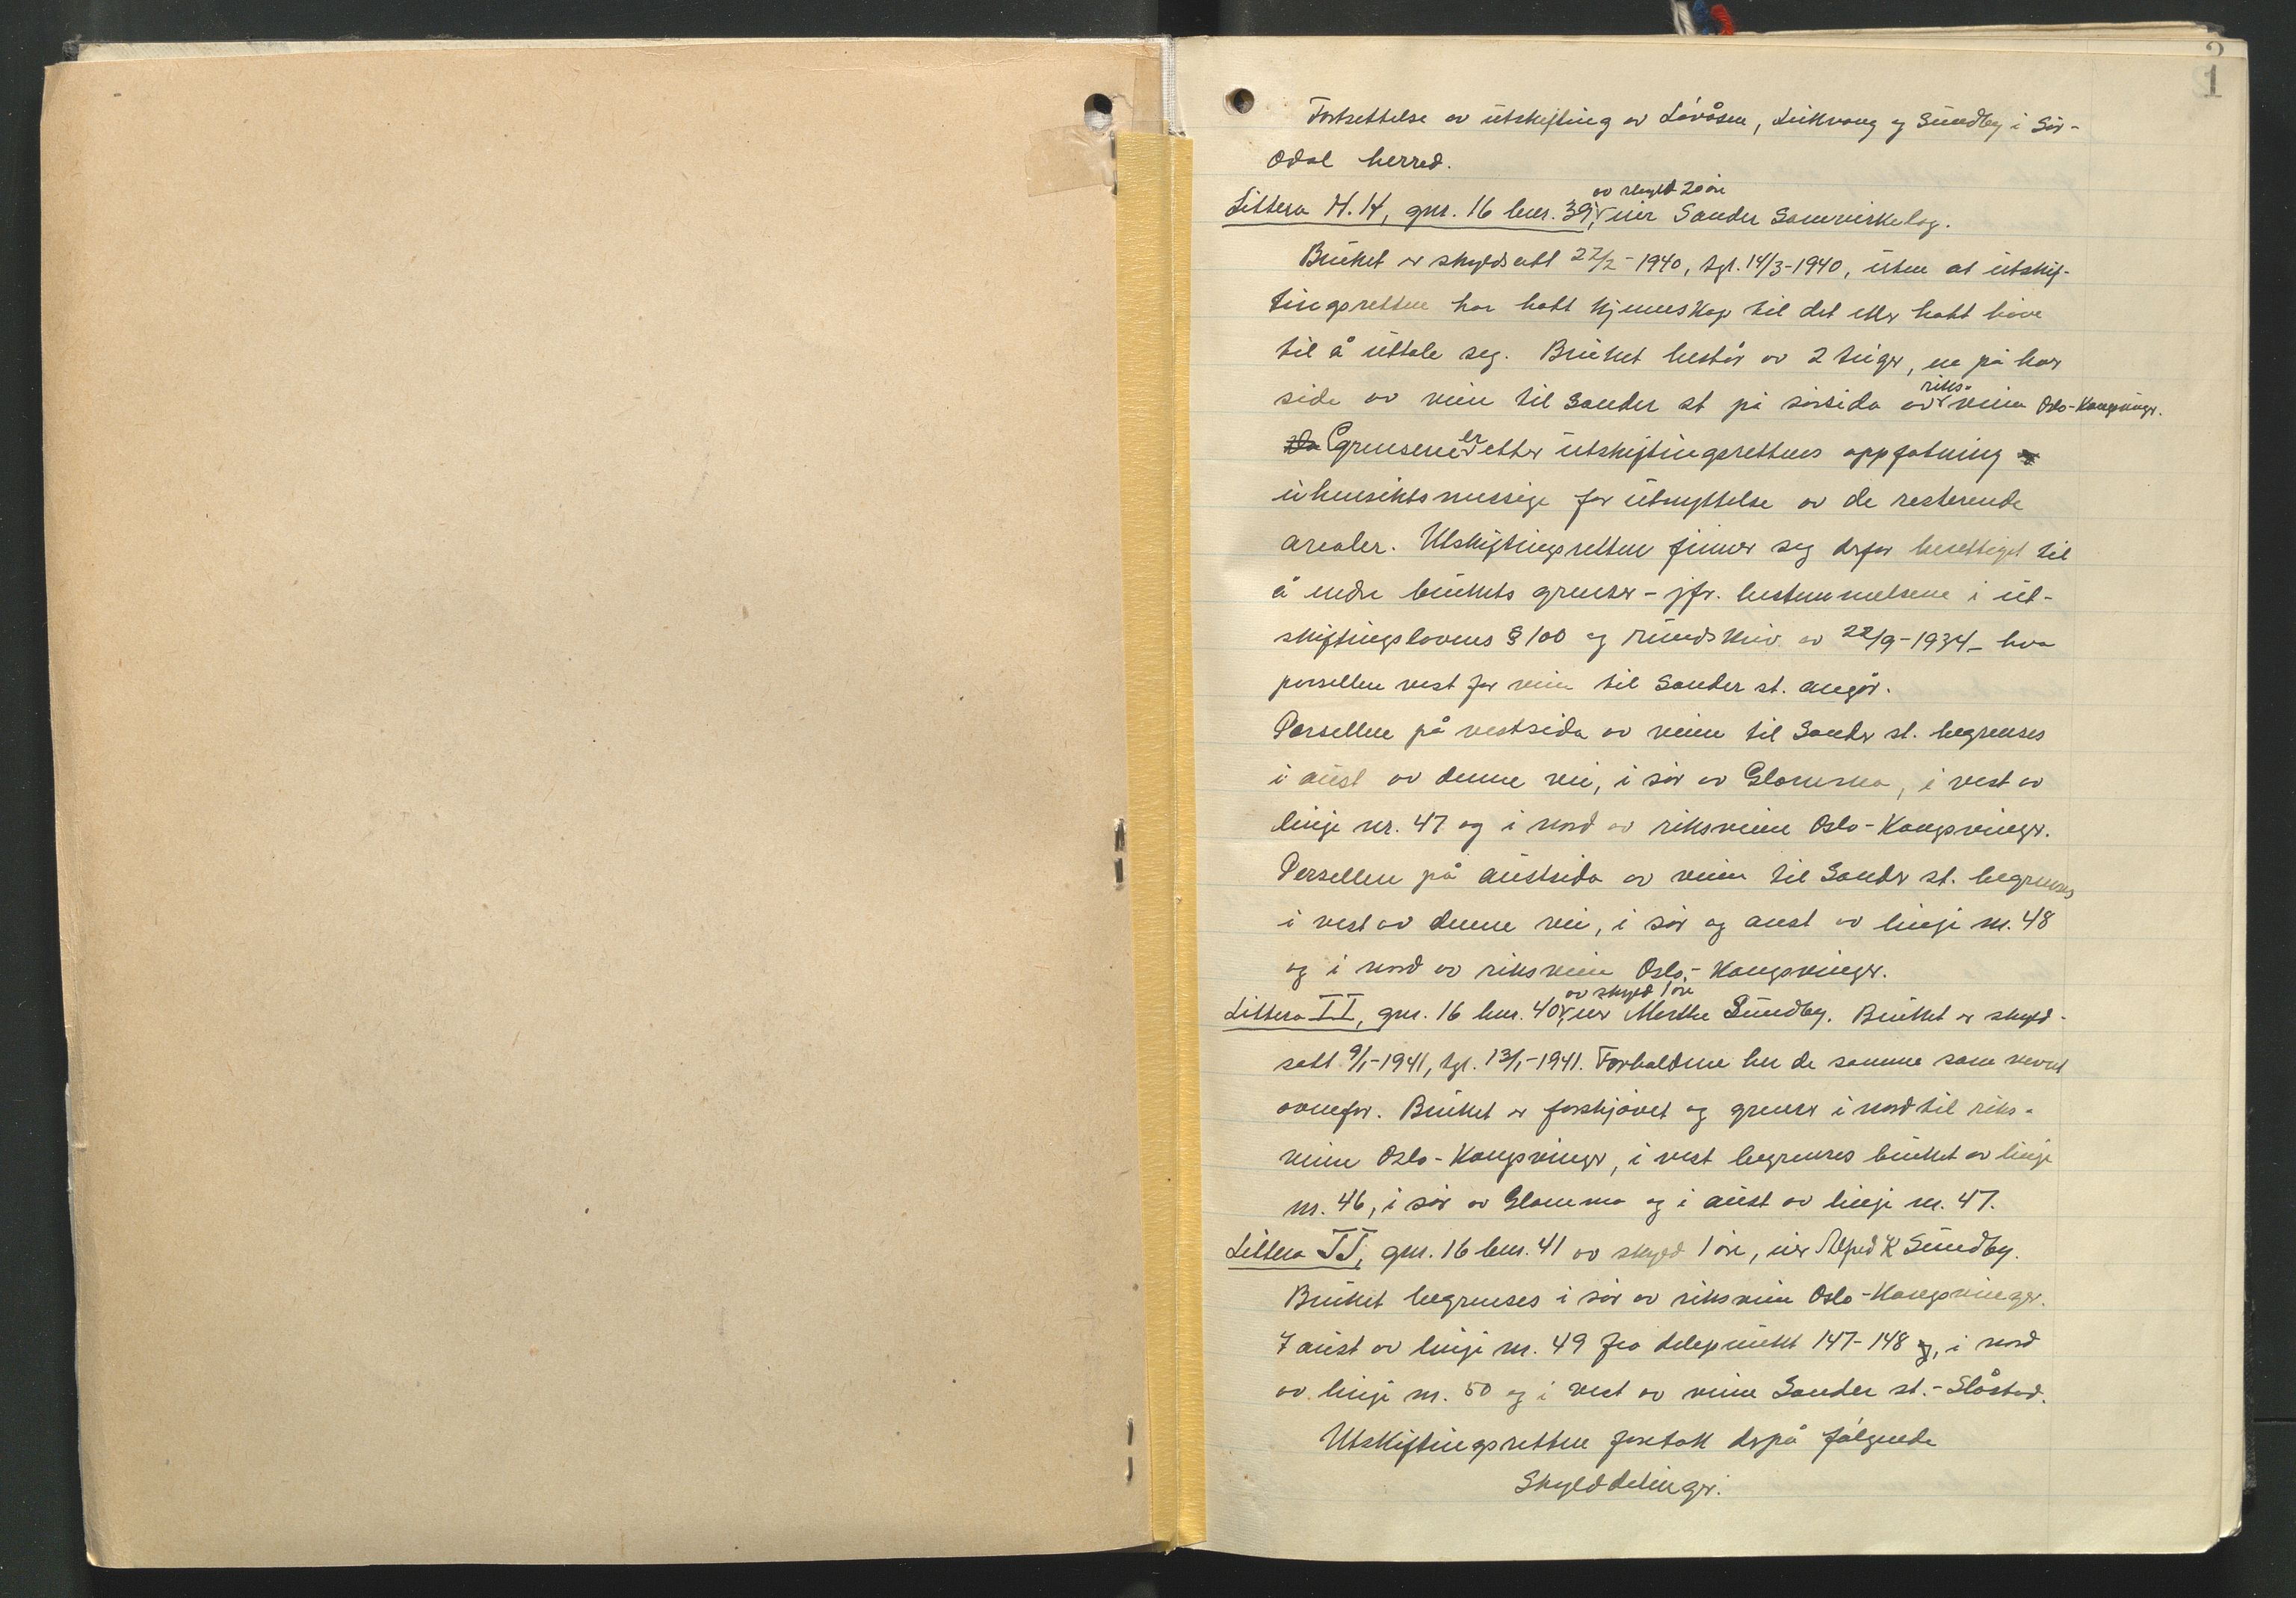 1
Fortsettelse av utskifting av Løvåsen, Leikvang og Sundby i Sør-
Odal herred.
av skyld 20 øre
Littera H.H, gnr. 16 bnr. 39, eier Sander Samvirkelag.
Bruket er skyldsatt 27/2-1940, tgl. 14/3-1940, uten at utskif-
tingsretten har hatt kjennskap til det eller hatt høve
til å uttale seg. Bruket består av 2 teiger, en på hver
side av veien til Sander st på sørsida av riks-veien Oslo-Kongsvinger.
Grensene er etter utskiftingsrettens oppfatning
uhensiktsmessige for utnyttelse av de resterende
arealer. Utskiftingsretten finner seg derfor berettiget til
å endre brukets grenser - jfr. bestemmelsene i ut-
skiftingslovens § 100 og rundskriv av 22/9-1934 - hva
parsellen vest for veien til Sander st. angår.
Parsellen på vestsida av veien til Sander st. begrenses
i aust av denne vei, i sør av Glomma, i vest av
linje nr. 47 og i nord av riksveien Oslo-Kongsvinger.
Parsellen på austsida av veien til Sander st. begrenses
i vest av denne vei, i sør og aust av linje nr. 48
og i nord av riksveien Oslo-Kongsvinger.
av skyld 1 øre
Littera II, gnr. 16 bnr. 40, eier Marthe Sundby. Bruket er skyld-
satt 9/1-1941, tgl. 13/1-1941. Forholdene her de samme som nevnt
ovenfor. Bruket er forskjøvet og grenser i nord til riks-
veien Oslo-Kongsvinger, i vest begrenses bruket av linje
nr. 46, i sør av Glomma og i aust av linje nr. 47.
Littera JJ, gnr. 16 bnr. 41 av skyld 1 øre, eier Alfred K Sundby.
Bruket begrenses i sør av riksveien Oslo-Kongsvinger.
I aust av linje nr. 49 fra delepunkt 147-148, i nord
av linje nr. 50 og i vest av veien Sander st.-Slåstad.
Utskiftingsretten foretok derpå følgende
Skylddelinger.